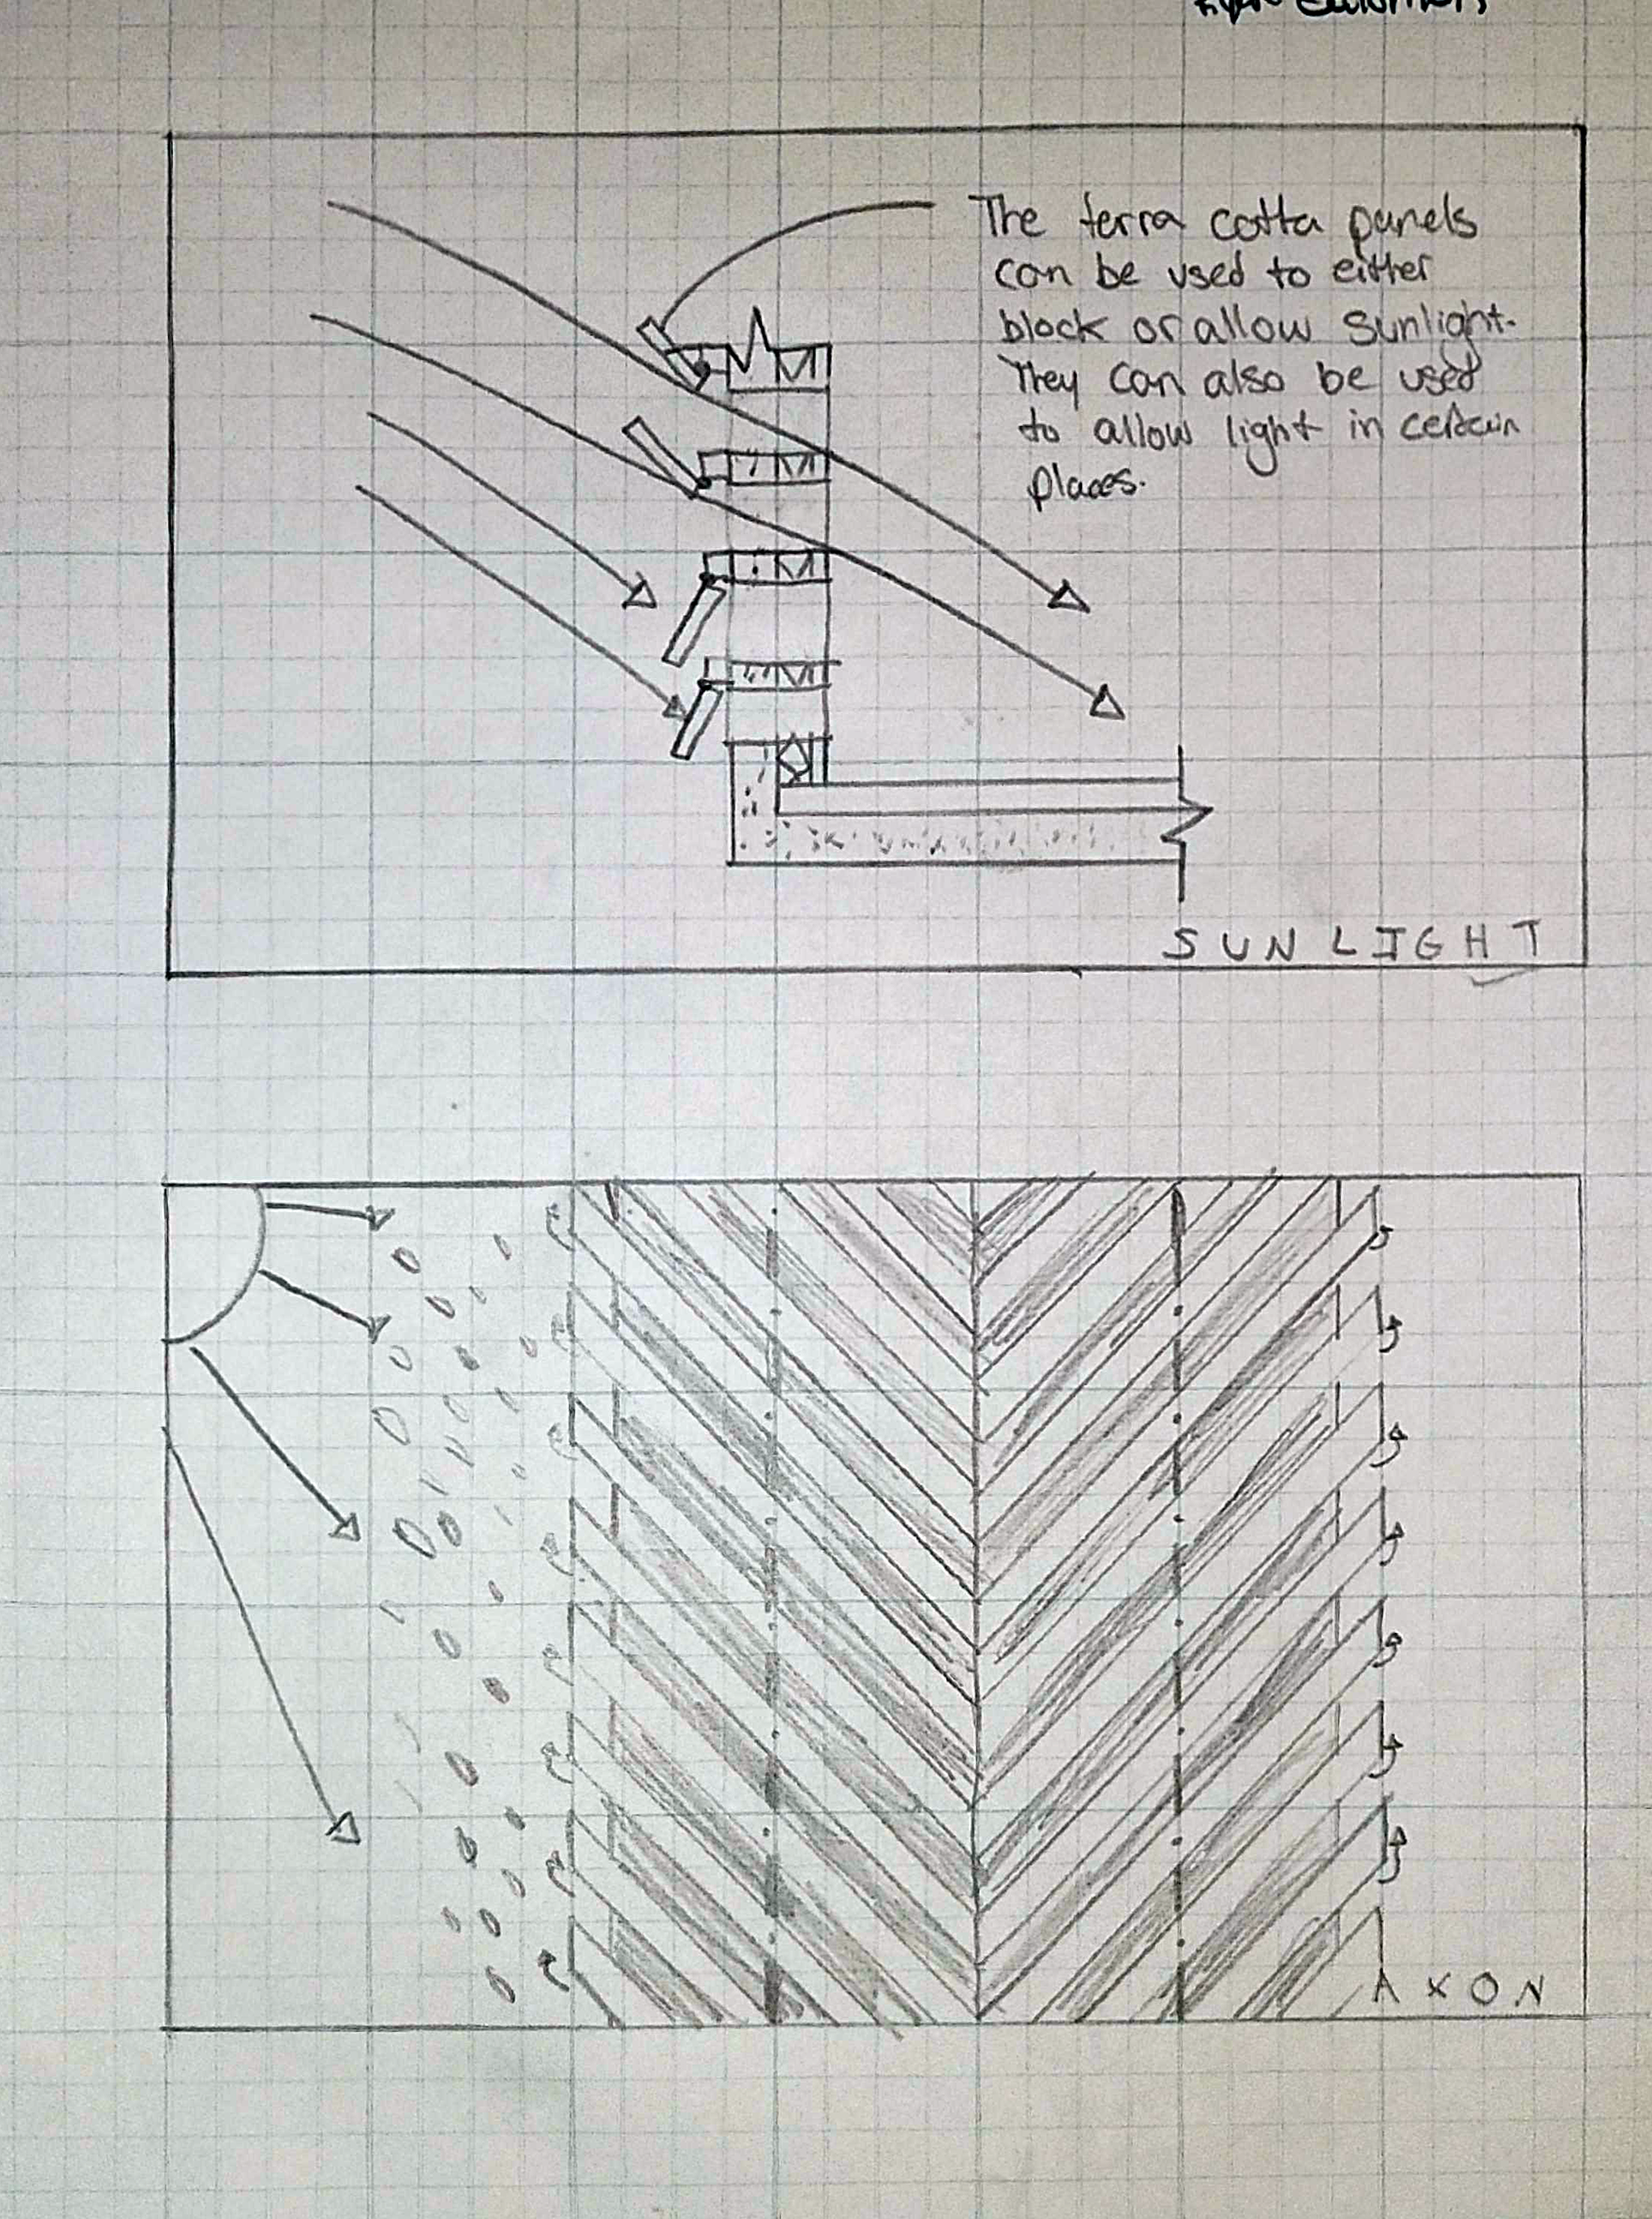 The terra cotta panels
can be used to either
block or allow sunlight.
They can also be used
to allow light in certain
places.
SUNLIGHT
AXON